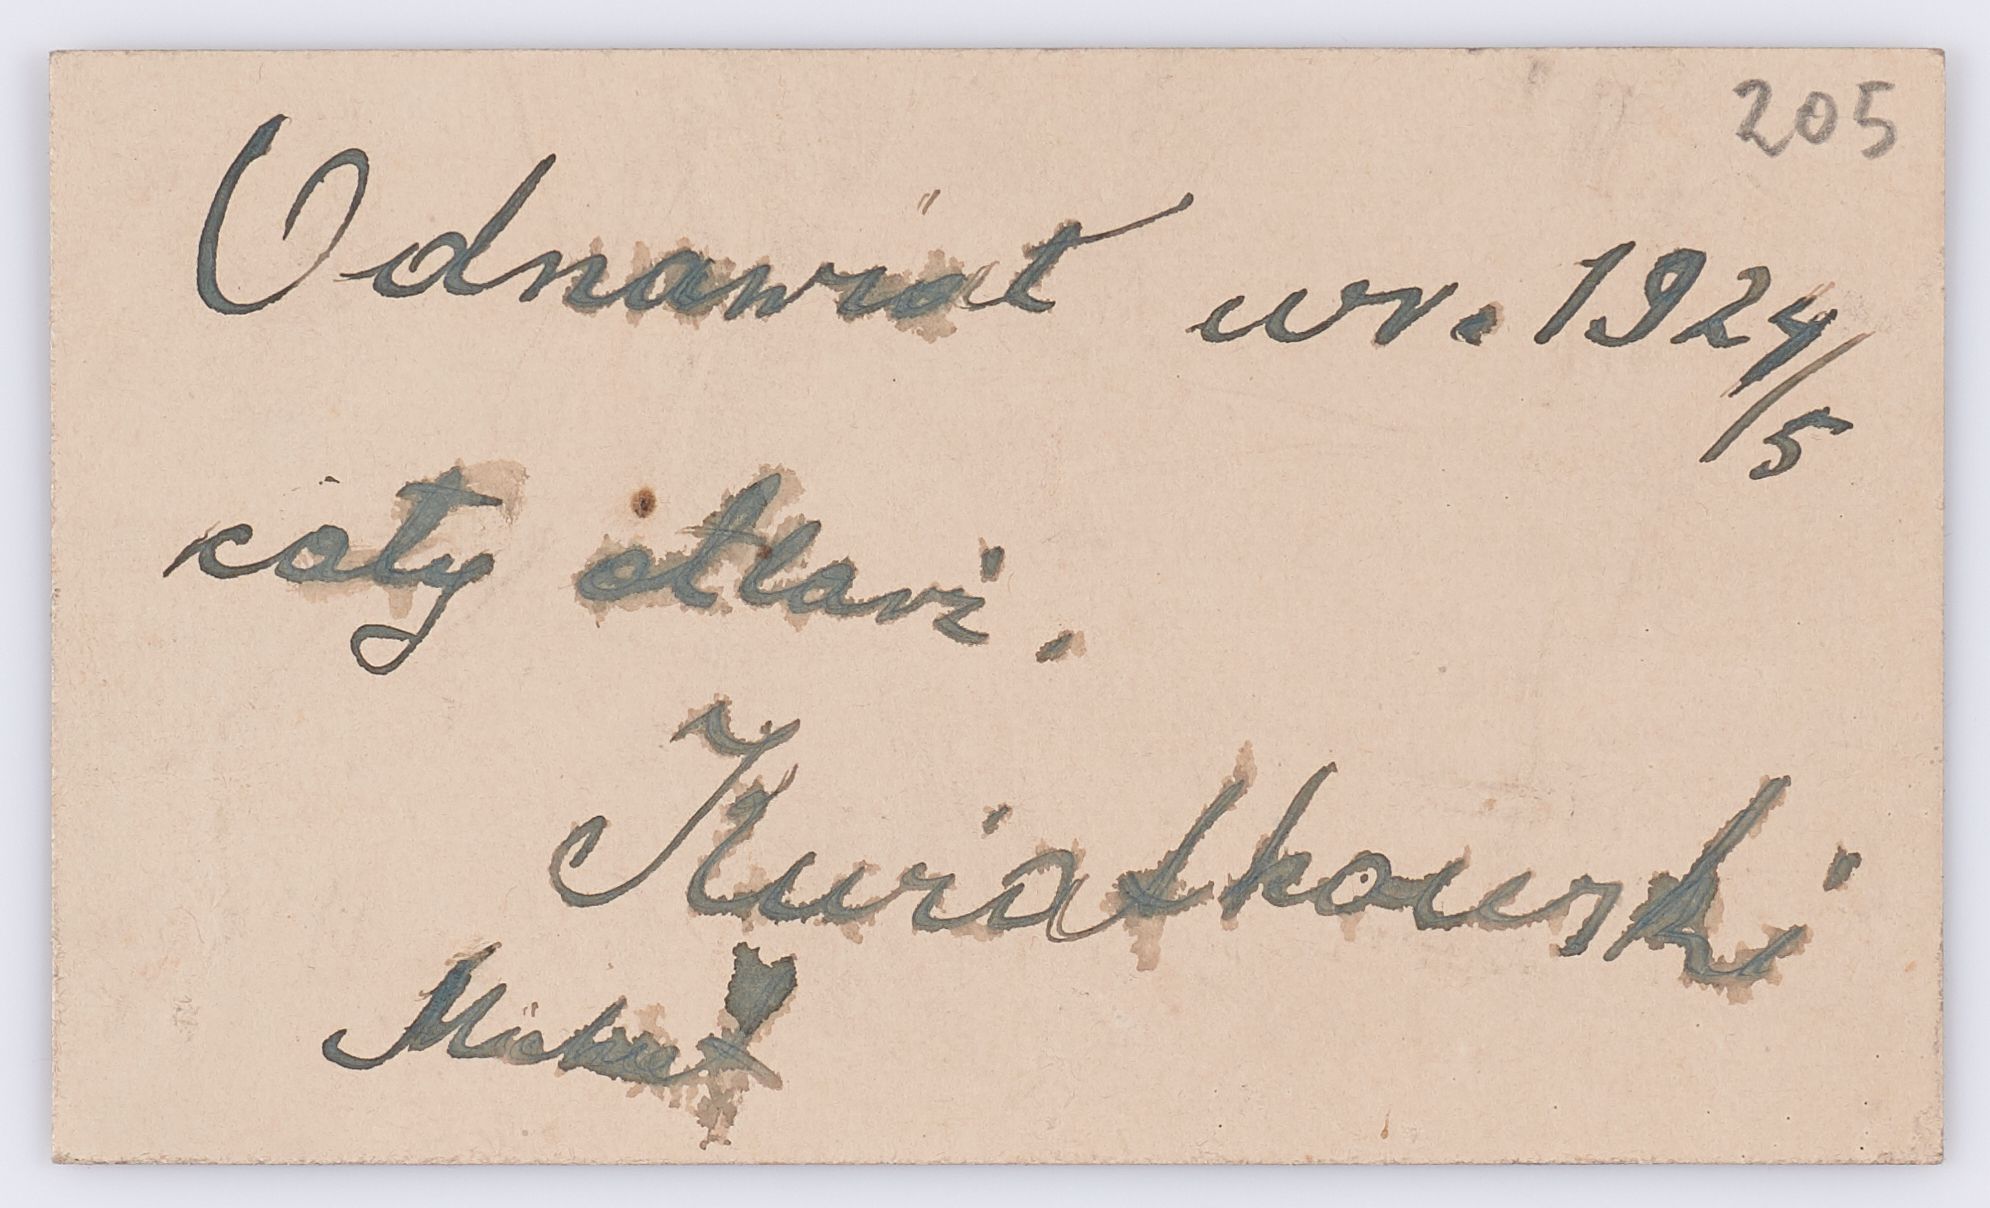 205
Odnawiał w r. 1924/5
cały ołtarz.
Kwiatkowski
Michał